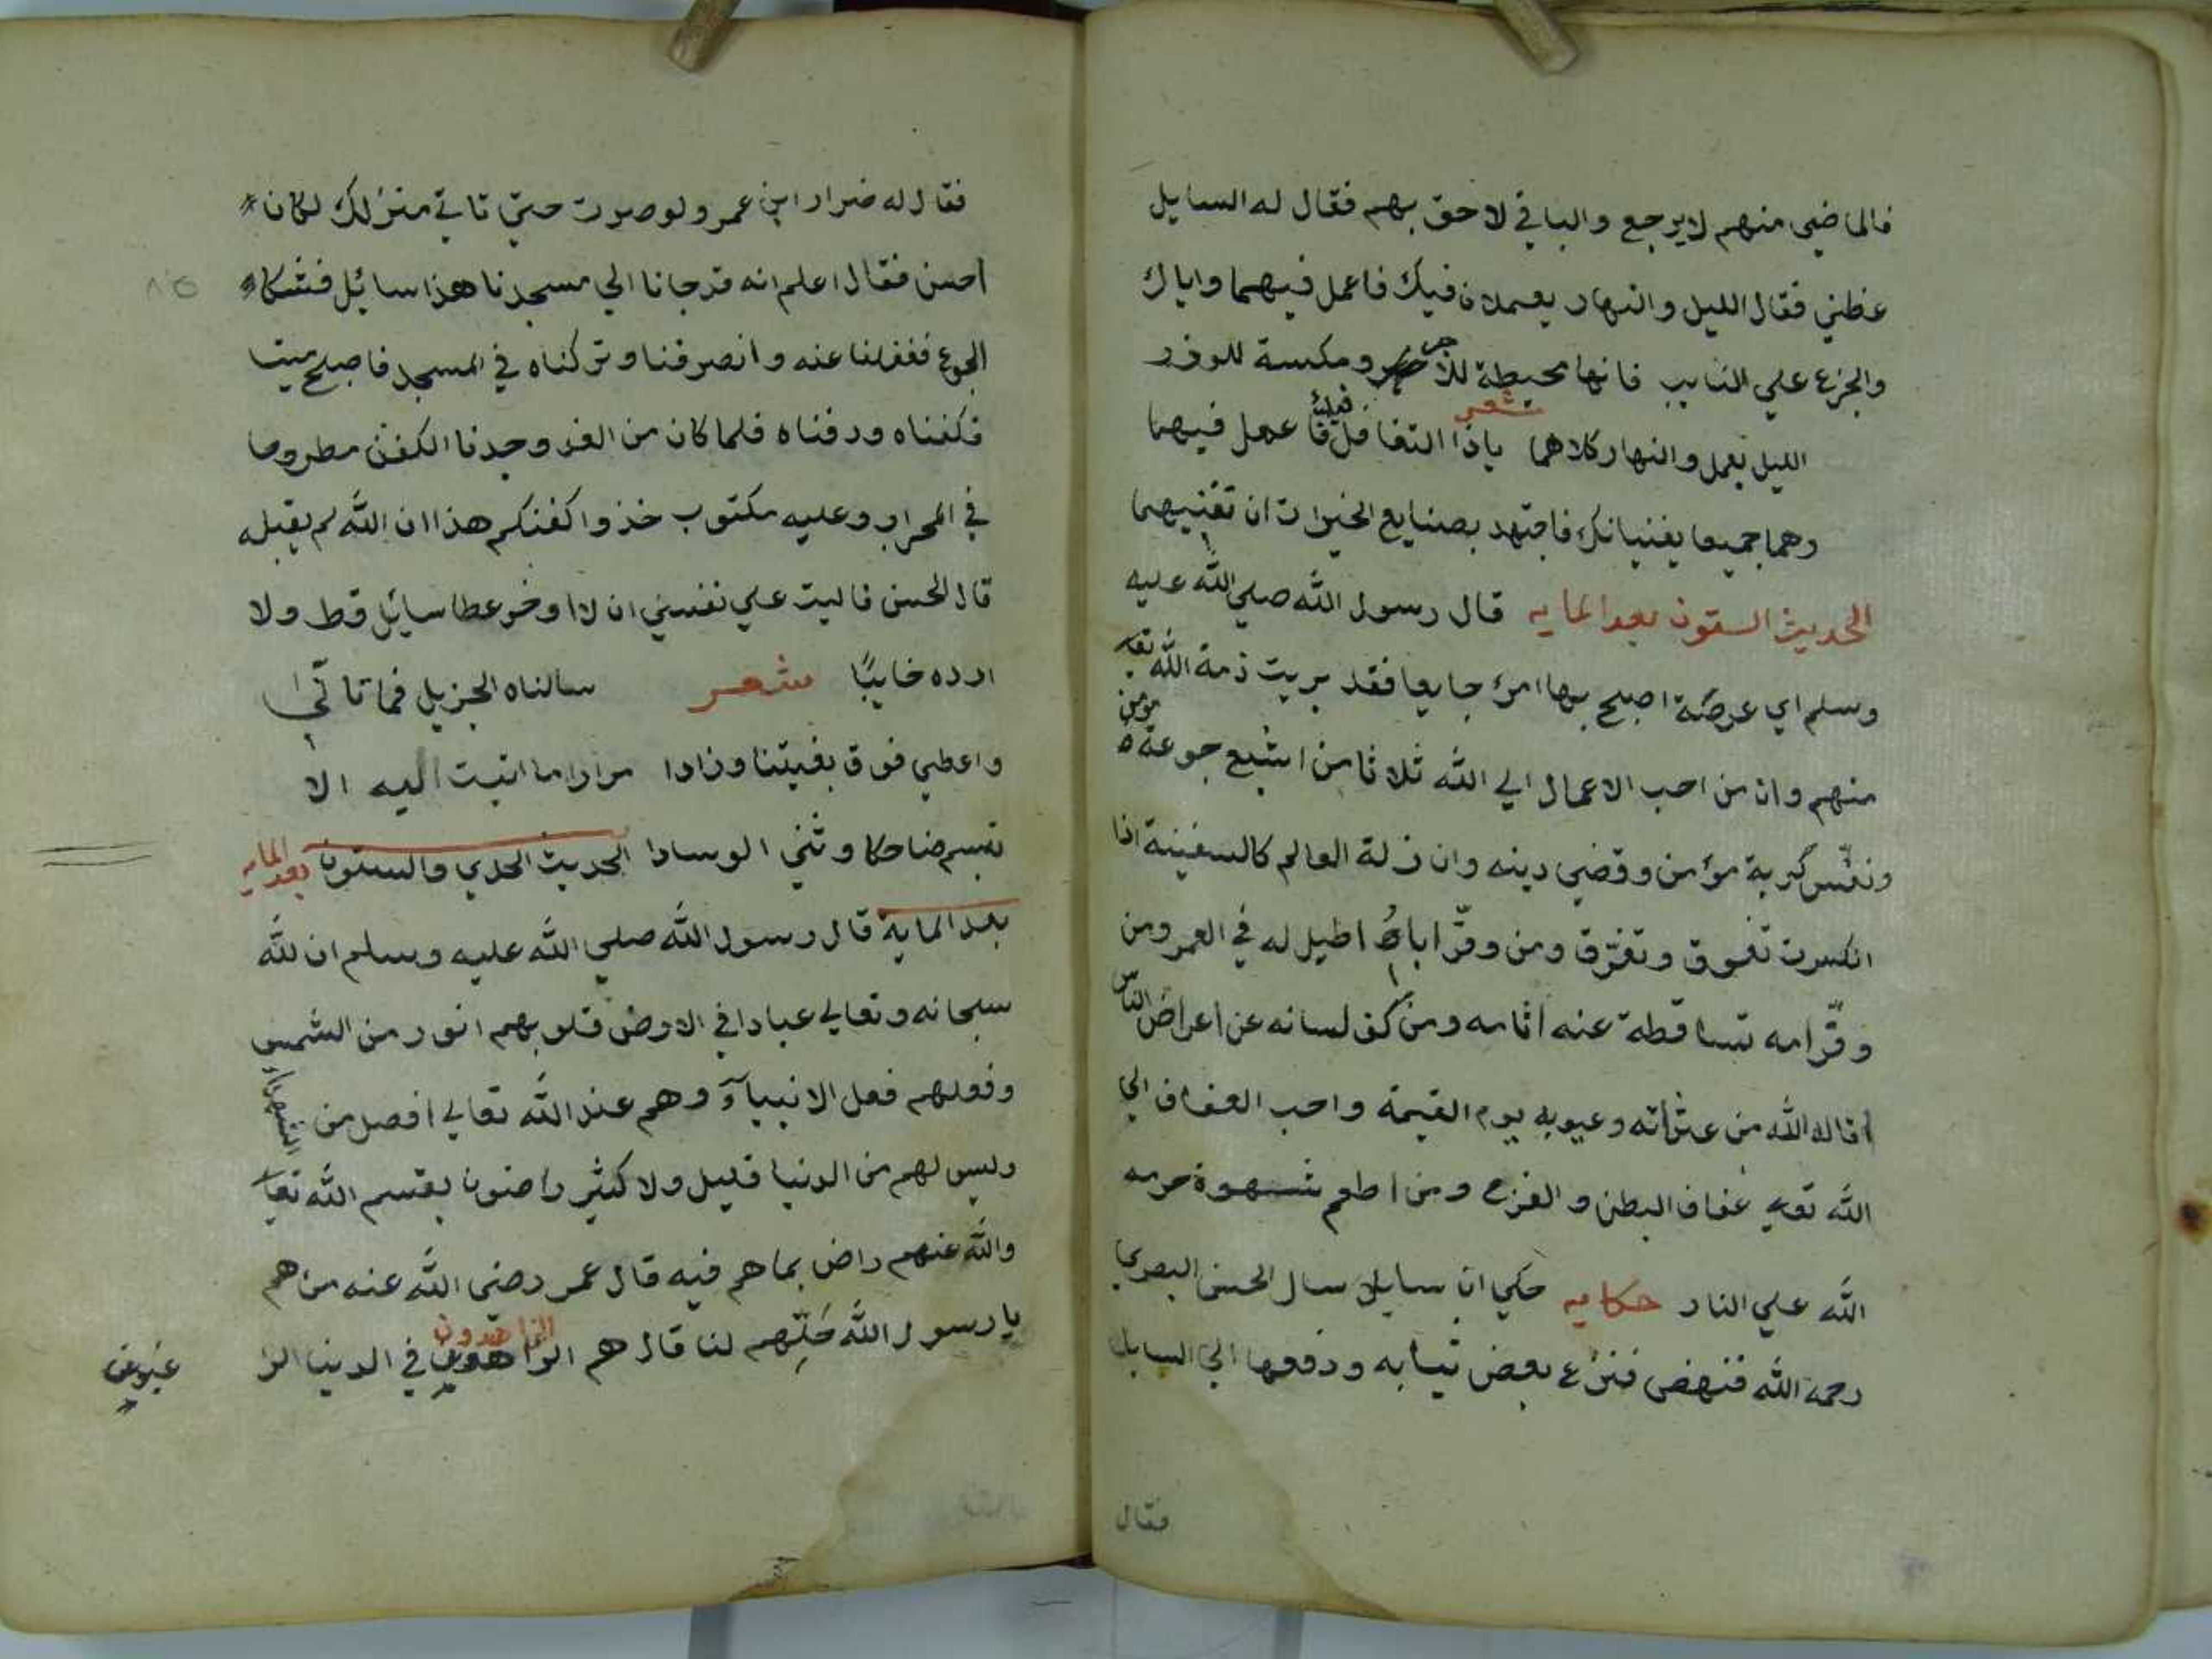 فالماضي منهم لا يرجع والباقي لاحق بهم فقال له السايل
عظني فقال الليل والنهار يعملان فيك فاعمل فيهما واياك
والجزع علي النايب فانها محيطة للاجر ومكسبة للوزر
شعر
الليل يعمل والنهار كلاهما ياذا التغافل فيك فاعمل فيهما
وهما جميعا يفنيانك فاجتهد بصنايع الخيرات ان تفنيهما
الحديث الستون بعد المايه قال رسول الله صلي الله عليه
وسلم اي عرصة اصبح بها امرئ جايعا فقد بريت ذمة الله تعا
منهم وان من احب الاعمال الي الله ثلاثا من اشبع جوعة مؤمن
ونفّس كربة مؤمن وقضي دينه وان زلة العالم كالسفينة اذا
انكسرت تغرق وتغرّق ومن وقّر اباه اطيل له في العمر ومن
وقّر امه تساقطة عنه اثامه ومن كف لسانه عن اعراض الناس
اقاله الله من عثراته وعيوبه يوم القيمة واحب العفاف الي
الله تعالي عفاف البطن و الفرج ومن اطعم شهوة حرمه
الله علي النار حكايه حكي ان سايل سال الحسن البصري
رحمه الله فنهض فنزع بعض ثيابه ودفعها الي السايل
فقال
فقال له ضرار ابن عمر ولو صبرت حتي تاتي منزلك لكان
احسن فقال اعلم انه قد جانا الي مسجدنا هذا سائل فشكا
الجوع فغفلنا عنه وانصرفنا وتركناه في المسجد فاصبح ميتا
فكفناه ودفناه فلما كان من الغد وجدنا الكفن مطروحا
في المحراب وعليه مكتوب خذوا كفنكم هذا ان الله لم يقبله
قال الحسن فاليت علي نفسي ان لا اوخر عطا سايل قط ولا
ارده خايبًا شعر سالناه الجزيل فما تاتي
واعطي فوق بغيتنا وزادا مرارا ما اتيت اليه الا
تبسم ضاحكا وثني الوسادا الحديث الحدي والستون بعد المايه
بعد الماية قال رسول الله صلي الله عليه وسلم ان لله
سبحانه وتعالي عبادا في الارض قلوبهم انور من الشمس
وفعلهم فعل الانبيآء وهم عند الله تعالي افضل من الشهدا
وليس لهم من الدنيا قليل ولا كثير راضون بقسم الله تعا
والله عنهم راض بما هم فيه قال عمر رضي الله عنه من هم
يا رسول الله حَلّهم لنا قال هم الزاهدون في الدنيا الرا
الزاهدون
غبون